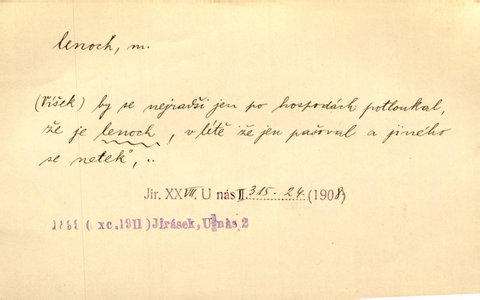 lenoch, m.
(Víšek) by se nejradši jen po hospodách potloukal,
že je lenoch, v létě že jen pašoval a jiného
se netek', ..
Jir. XXVII. U nás II. 315. 24. (1908)
( xc. 1911) Jirásek, U nás 2